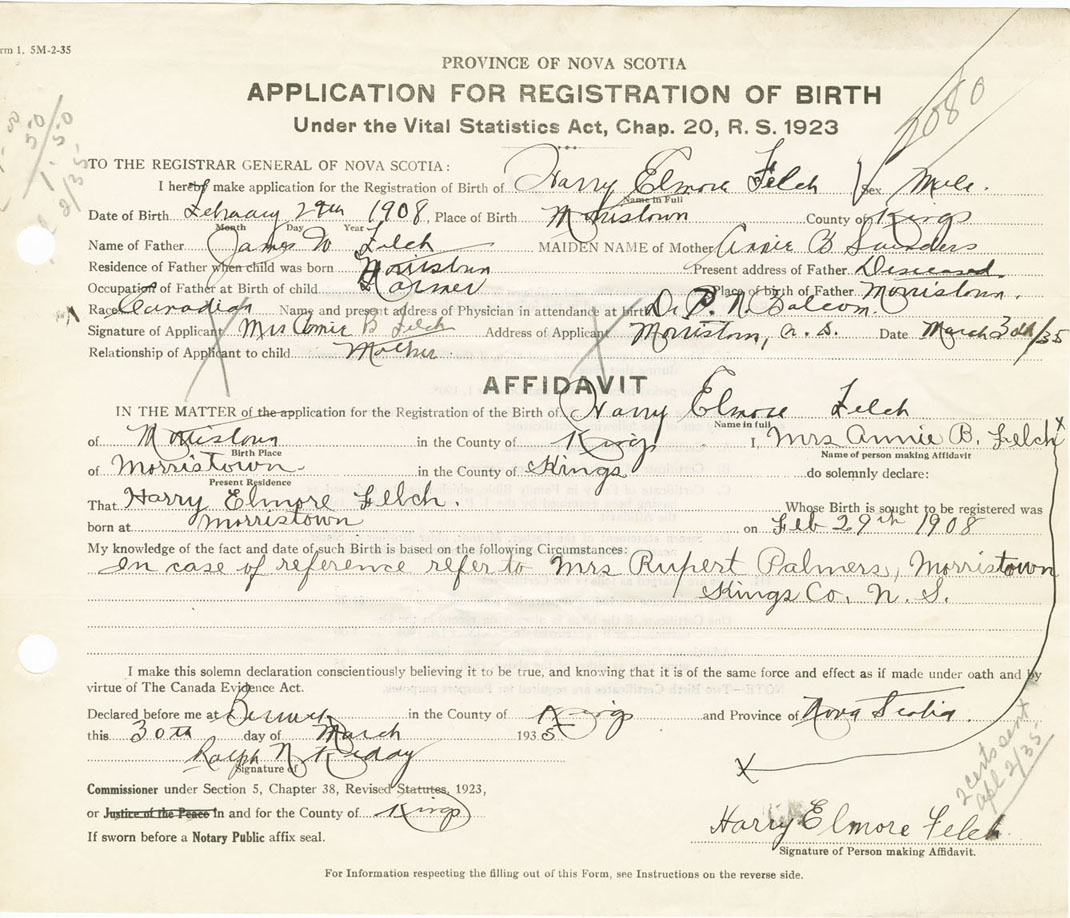 rm 1. 5M-2-35
PROVINCE OF NOVA SCOTIA
APPLICATION FOR REGISTRATION OF BIRTH
Under the Vital Statistics Act, Chap. 20, R. S. 1923
2080
50
1.50
TO THE REGISTRAR GENERAL OF NOVA SCOTIA:
I hereby make application for the Registration of Birth of Harry Elmore Felch Sex Male.
Name in Full
Date of Birth February 29th 1908, Place of Birth Morristown County of Kings
Month Day Year
Name of Father James W Felch MAIDEN NAME of Mother Annie B Saunders
Residence of Father when child was born Morristown Present address of Father Deceased.
Occupation of Father at Birth of child Farmer Place of birth of Father Morristown.
Race Canadian Name and present address of Physician in attendance at birth D. P. N. Balcom.
Signature of Applicant Mrs Annie B Felch Address of Applicant Morristown, N. S. Date March 30th/35
Relationship of Applicant to child Mother
AFFIDAVIT
IN THE MATTER of the application for the Registration of the Birth of Harry Elmore Felch
Name in full
of Morristown in the County of Kings I, Mrs Annie B. Felch x
Birth Place Name of person making Affidavit
of Morristown in the County of Kings do solemnly declare:
Present Residence
That Harry Elmore Felch. Whose Birth is sought to be registered was
born at Morristown on Feb 29th 1908
My knowledge of the fact and date of such Birth is based on the following Circumstances:
In case of reference refer to Mrs Rupert Palmers, Morristown
Kings Co. N. S.
I make this solemn declaration conscientiously believing it to be true, and knowing that it is of the same force and effect as if made under oath and by
virtue of The Canada Evidence Act.
Declared before me at Berwick in the County of Kings and Province of Nova Scotia.
this 30th day of March 1935
Ralph N
Signature of
x
2 certs sent
Apl 2/35
Commissioner under Section 5, Chapter 38, Revised Statutes, 1923,
or Justice of the Peace in and for the County of Kings
If sworn before a Notary Public affix seal.
Harry Elmore Felch
Signature of Person making Affidavit.
For Information respecting the filling out of this Form, see Instructions on the reverse side.